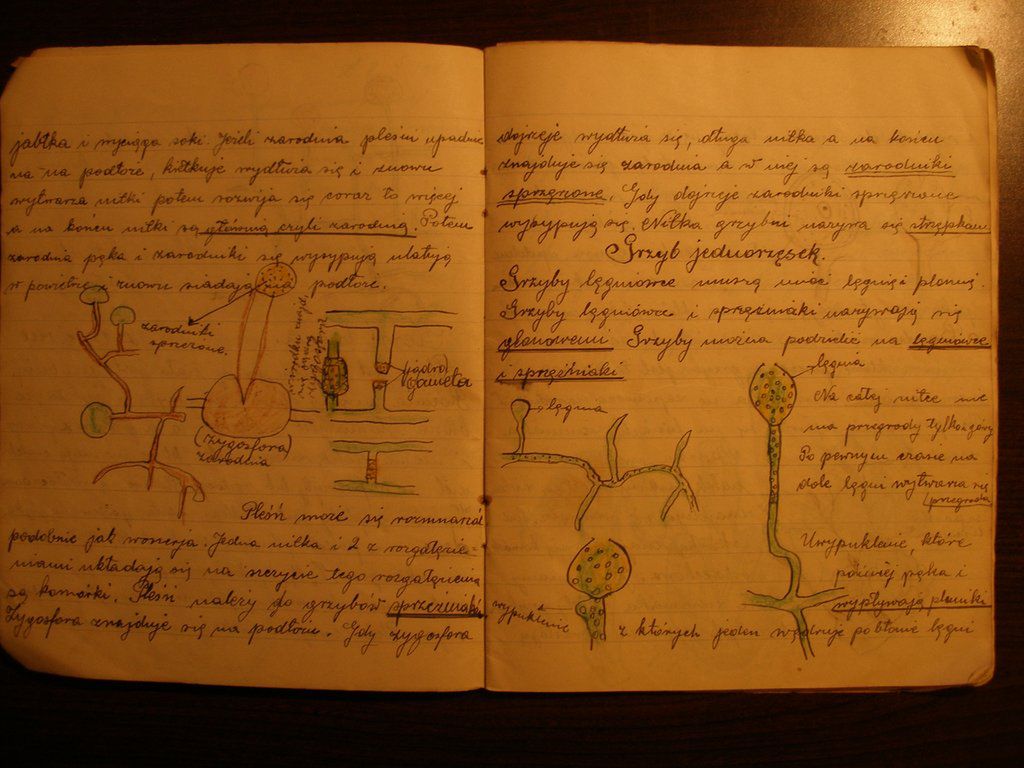 jabłka i wyciąga soki. Jeżeli zarodnia pleśni upadnie
na na podłoże, kiełkuje wydłuża się i znowu
wytwarza nitki potem rozwija się coraz to więcej
a na końcu nitki są główną czyli zarodnią. Potem
zarodnia pęka i zarodniki się wysypują ulatują
w powietrze i znowu siadają na podłoże.
zarodniki
sprzężone.
jądro
gameta
(zygosfora)
zarodnia
Pleśń może się rozmnażać
podobnie jak woszerja. Jedna nitka i 2 z rozgałęzie-
niami układają się na szczycie tego rozgałęzienia
są komórki. Pleśń należy do grzybów sprzężniaki
Zygosfora znajduje się na podłożu. Gdy zygosfora
dojrzeje wydłuża się, długa nitka a na końcu
znajduje się zarodnia a w niej są zarodniki
sprzężone. Gdy dojrzeje zarodniki sprzężone
wysypują się. Nitka grzybni nazywa się strzępkam
Grzyb jednorzęsek.
Grzyby lęgniowce muszą mieć lęgnię i plemię.
Grzyby lęgniowce i sprzężniaki nazywają się
glonowemi Grzyby można podzielić na lęgniowce
i sprzężniaki
lęgnia
lęgnia
Na całej nitce nie
ma przegrody tylko z góry
Po pewnym czasie na
dole lęgni wytwarza się
(przegroda
Uwypuklenie, które
później pęka i
wypływają plemniki
wypuklenie
z których jeden wędruje po błonie lęgni